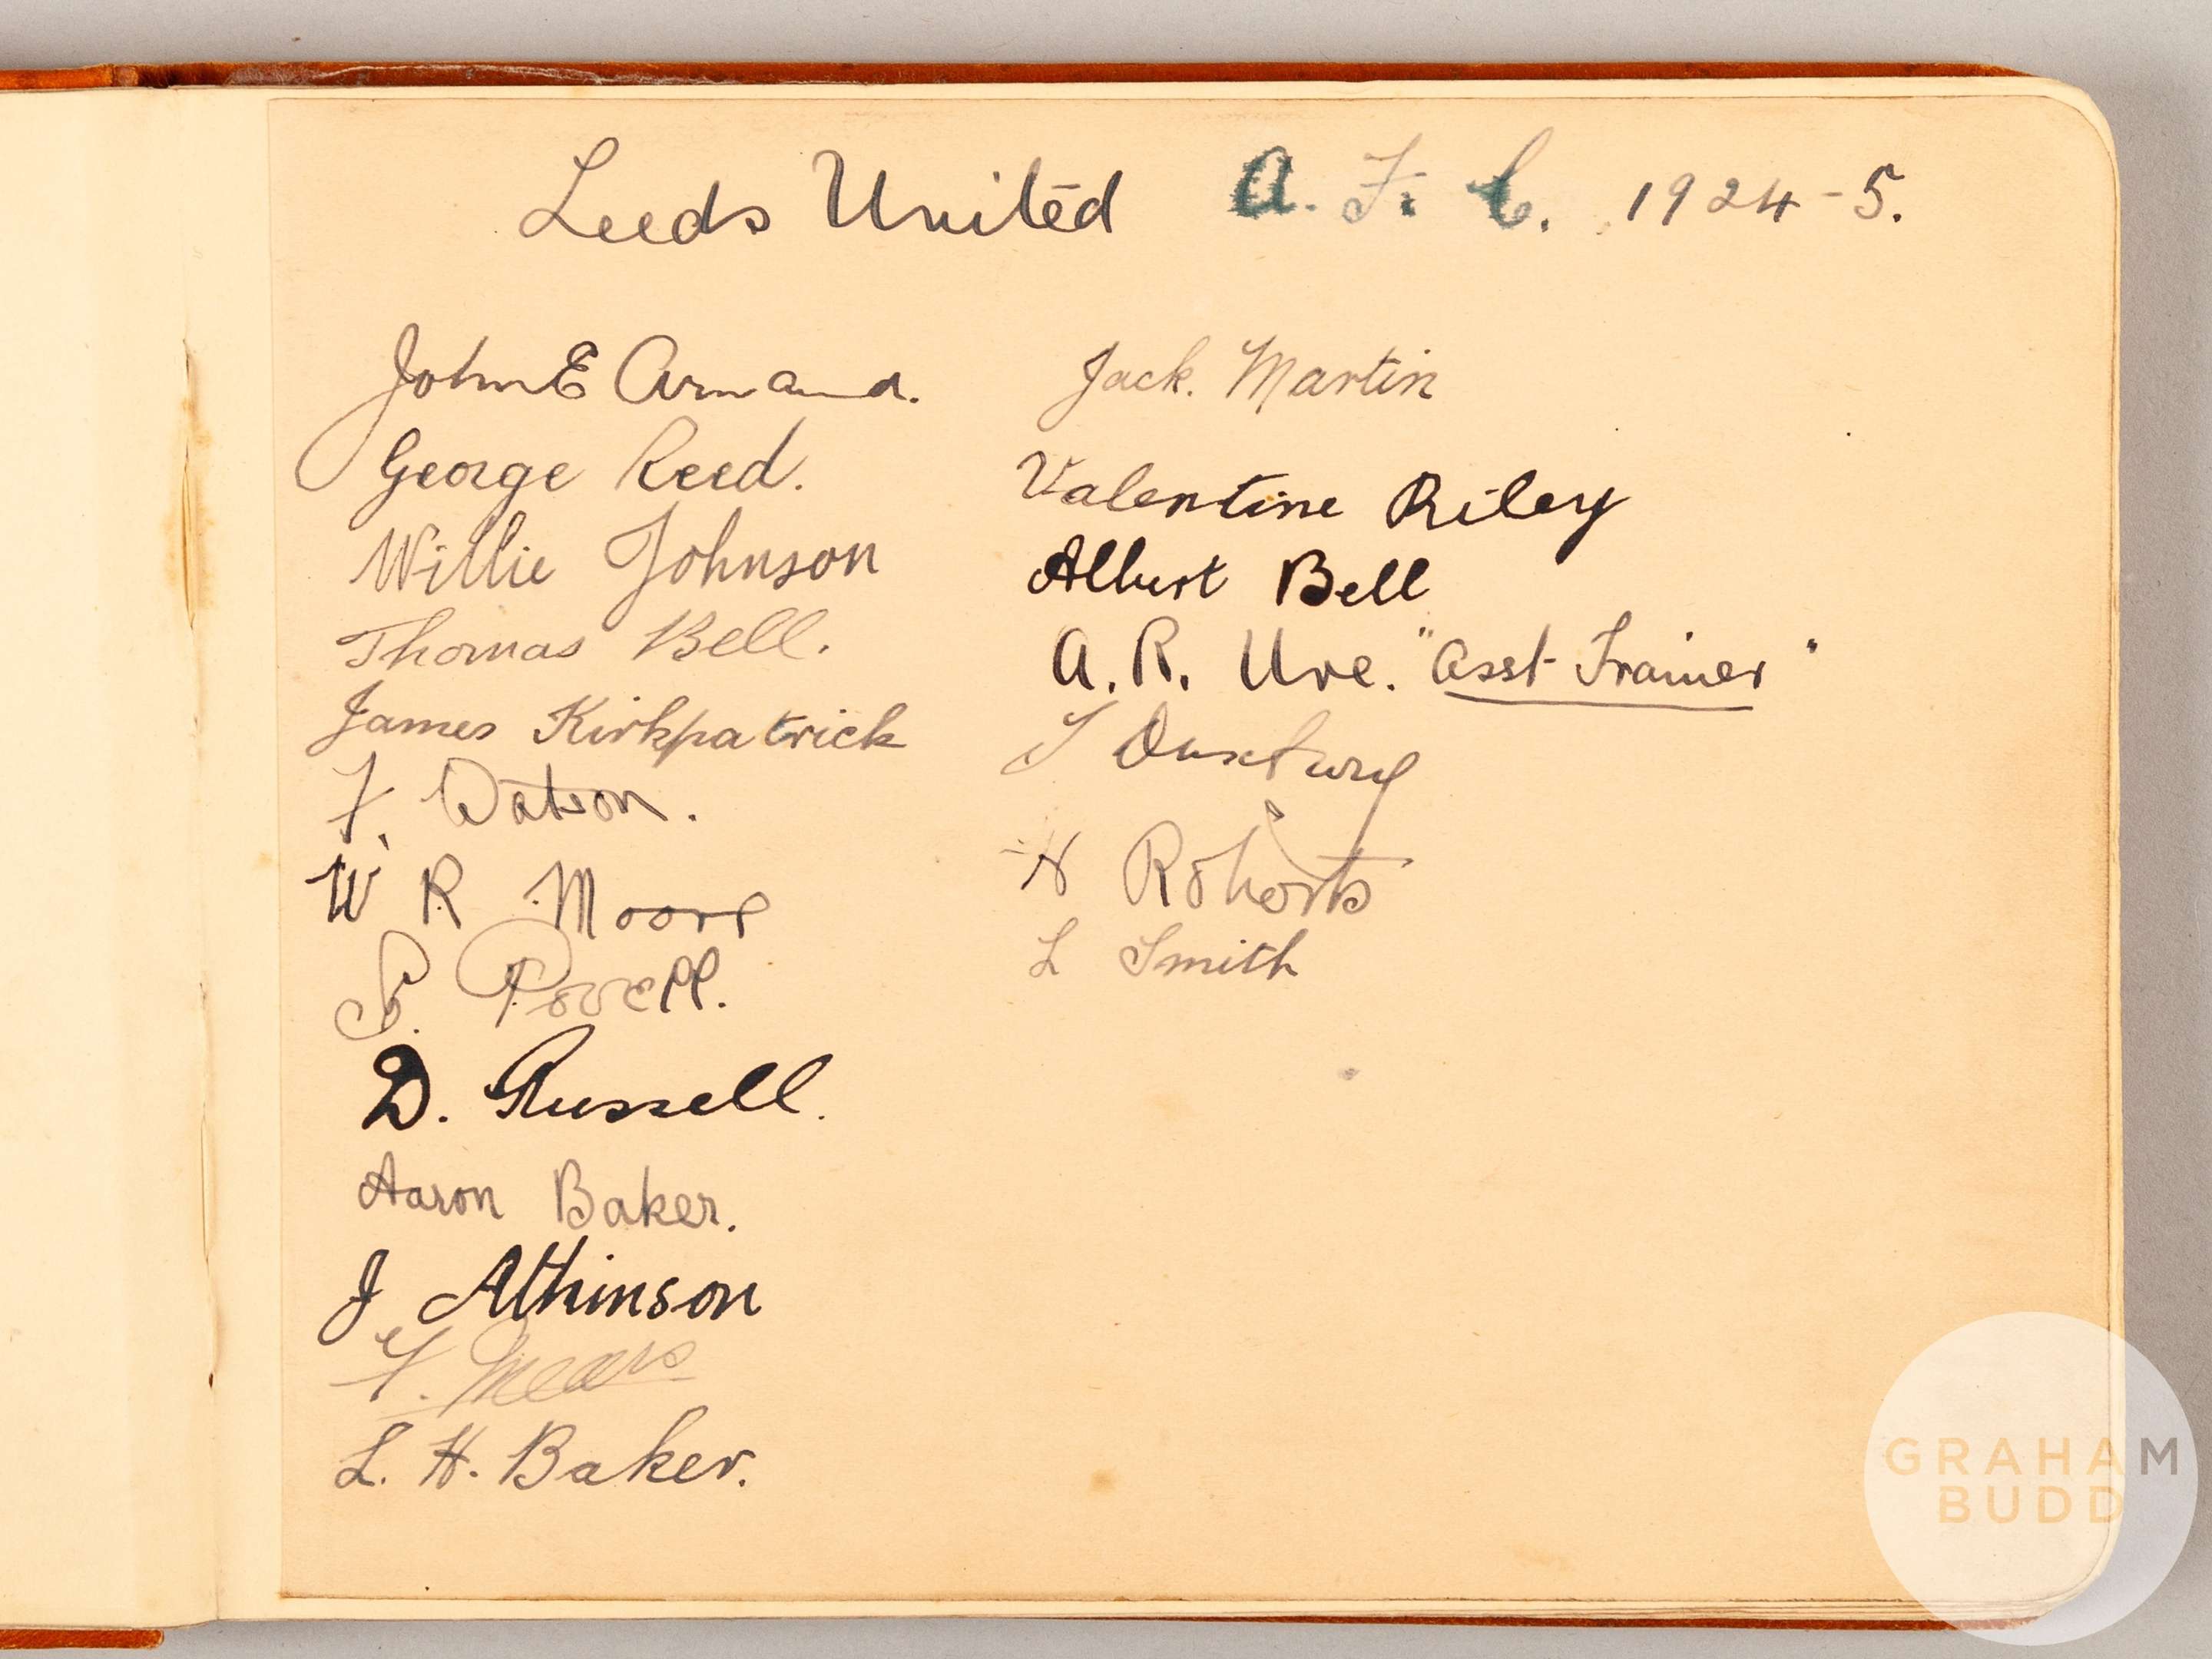 Leeds United A. F. C. 1924-5.
John E Armand.
George Reed.
Willie Johnson
Thomas Bell.
James Kirkpatrick
F. Watson.
W R Moore
S. Powell.
D. Russell.
Aaron Baker.
J Atkinson
F. Mears
L. H. Baker.
Jack. Martin
Valentine Riley
Albert Bell
A. R. Ure. "Asst Trainer"
T Duxbury
H Roberts
L Smith
GRAHAM
BUDD